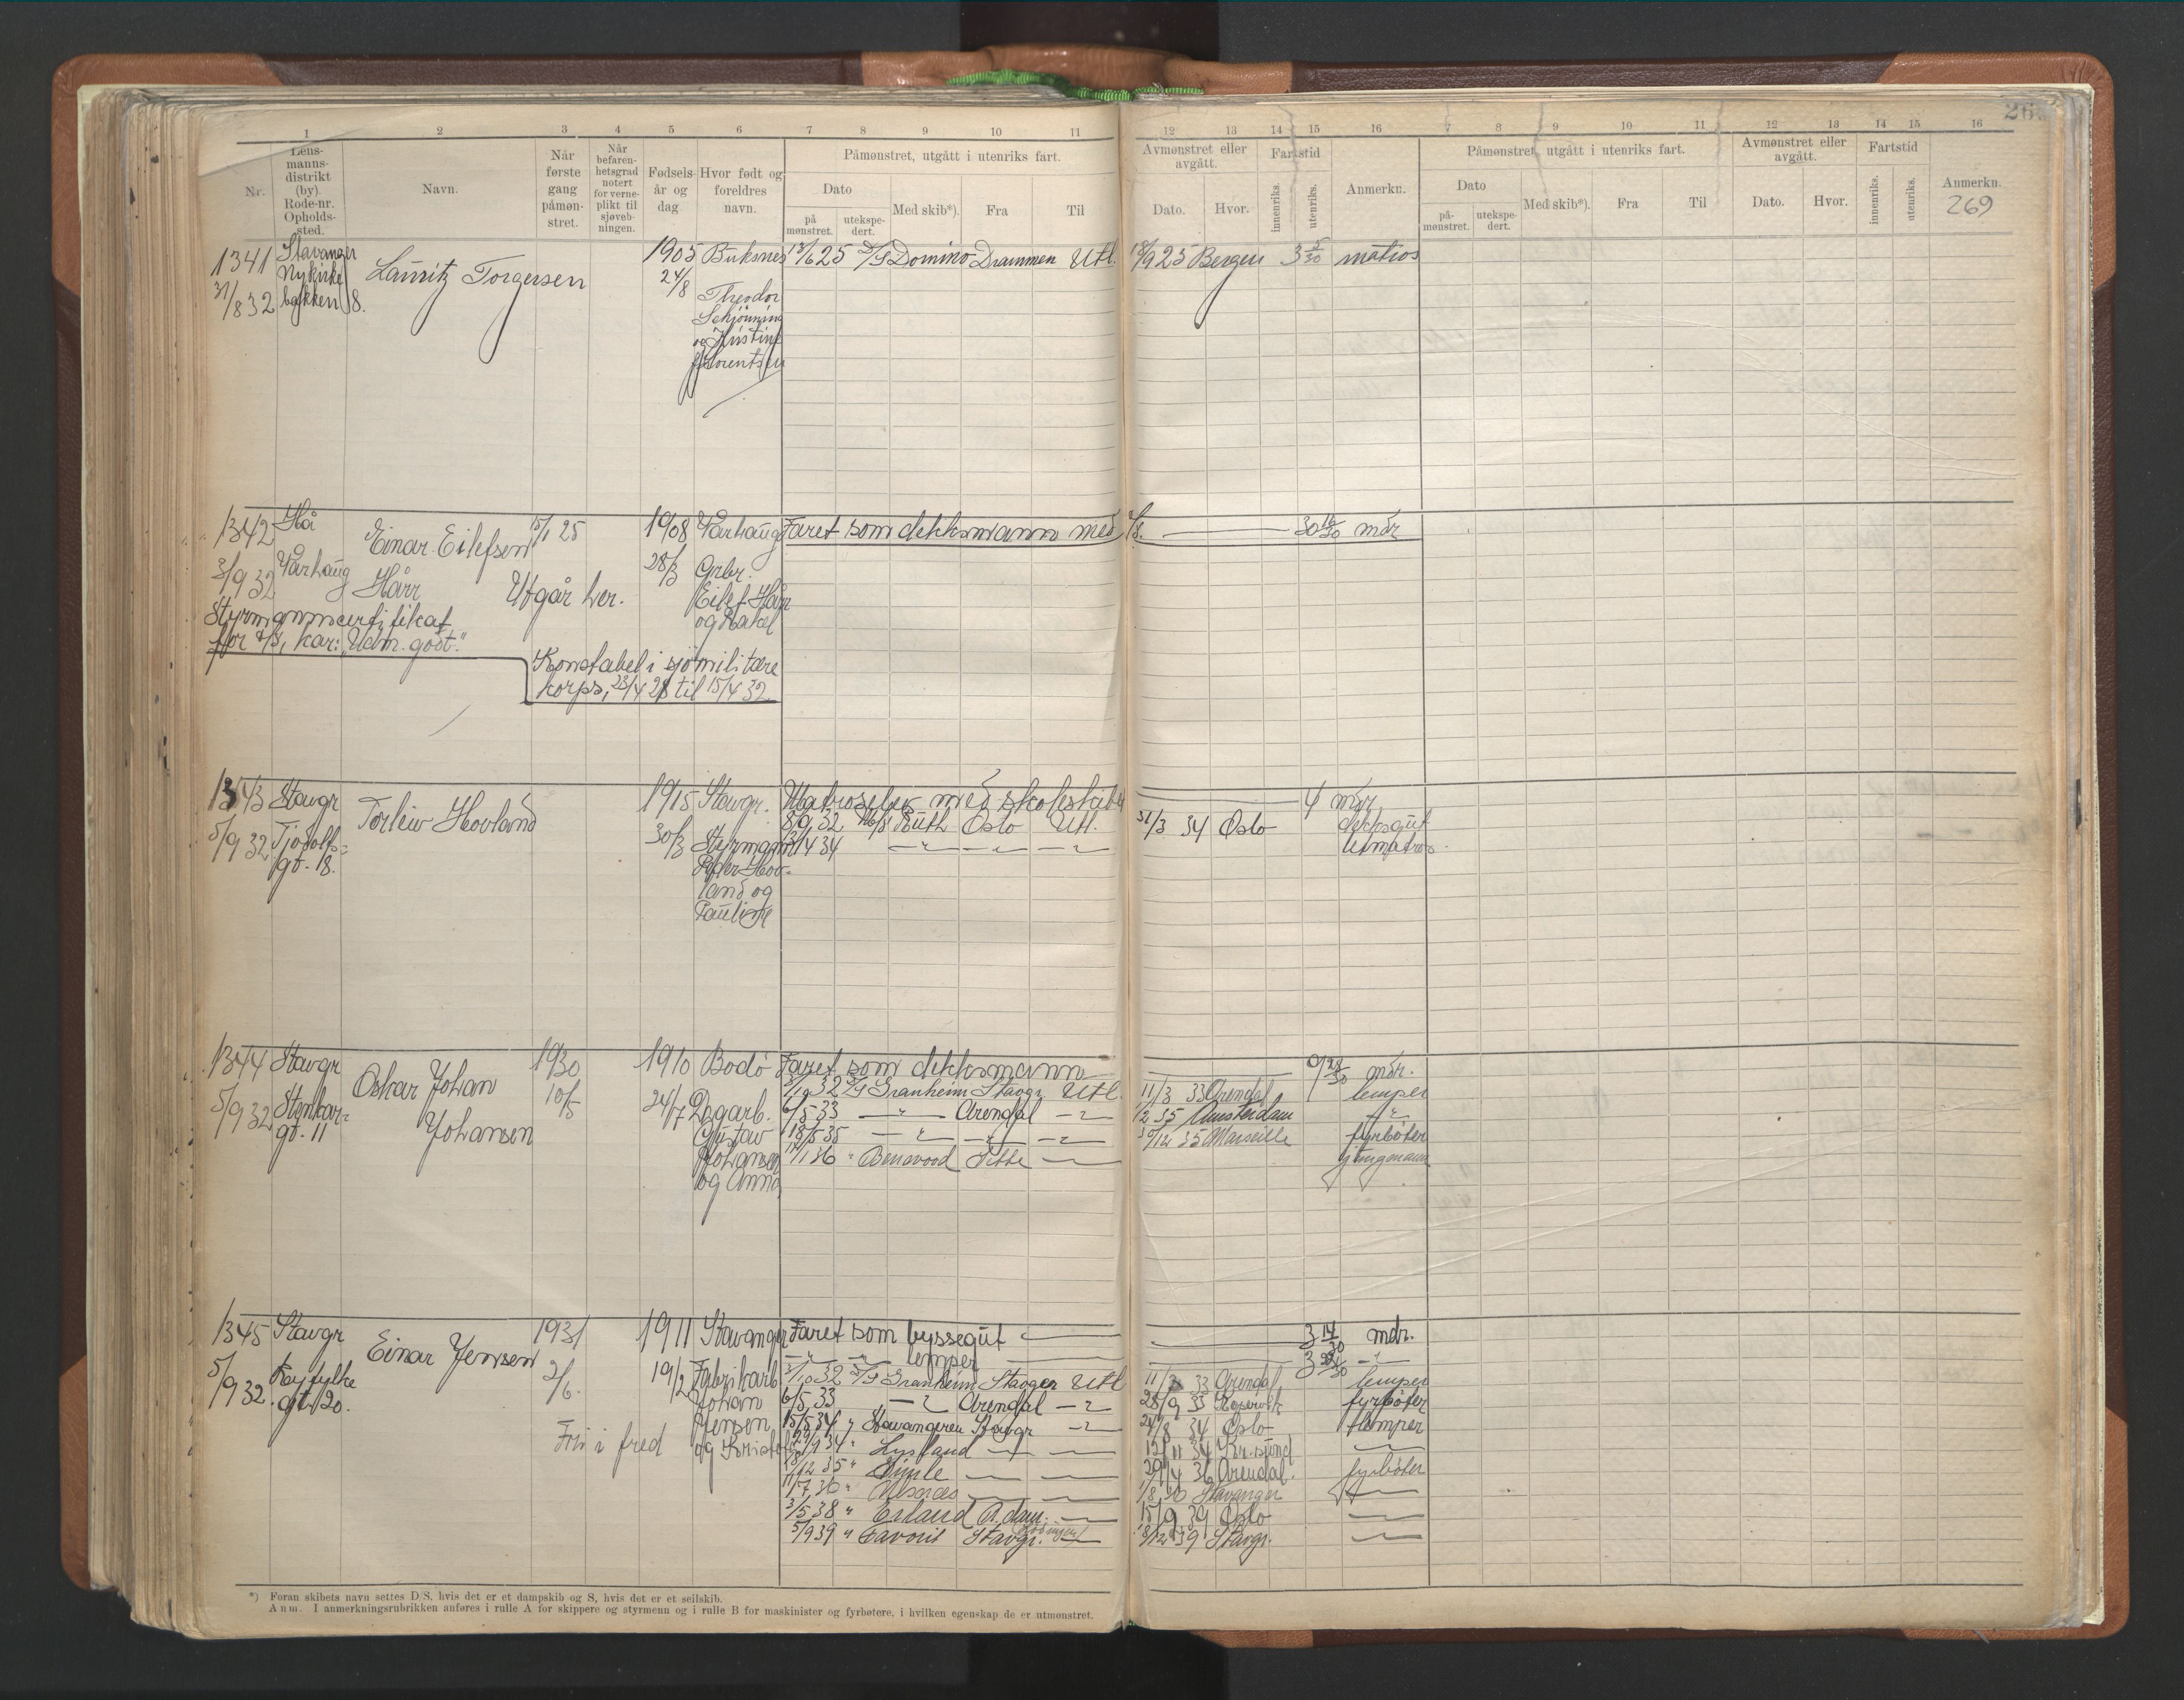 1 2 3 4 5 6 7 8 9 10 11 12 13 14 15 16 7 8 9 10 11 12 13 14 15 16
Nr.
Lensmannsdistrikt (by). Rode-nr. Opholdssted.
Navn.
Når første gang påmønstret.
Når befarenhetsgrad notert for verneplikt til sjøvebningen.
Fødselsår og dag
Hvor født og foreldres navn.
Påmønstret, utgått i utenriks fart.
Dato
på mønstret.
utekspedert.
Med skib*).
Fra
Til
Avmønstret eller avgått.
Dato.
Hvor.
Fartstid
innenriks.
utenriks.
Anmerkn.
Påmønstret, utgått i utenriks fart.
Dato
på-mønstret.
utekspedert.
Med skib*).
Fra
Til
Avmønstret eller avgått.
Dato.
Hvor.
Fartstid
innenriks.
utenriks.
Anmerkn.
269
1341 Stavanger Lauritz Torgersen 1905 Buksnes 13/6 25 D/S Domino Drammen Utl. 18/9 25 Bergen 3 5/30 matros
31/8 32 Nykirkebakken 18. 24/8
Theodor
Schjønning
og Kristine
f. Lorentsen
1342 Hå Einar Eilefsen 15/1 25 1908 Varhaug Faret som dekksmann med 4/8. 30 16/30 mdr
3/9 32 Varhaug Hårr Utgår her. 28/3 Grbr.
Eilef Hårr
og Rakel
Styrmannscertifikat
for D/S, kar: "Udm. godt."
Konstabel i sjømilitære
korps, 23/4 28 til 15/4 32
1343 Stavgr Torleiv Hovland 1915 Stavgr. Matroselev med skoleskibet 4 mdr
5/9 32 Tjodolfsgt. 18. 30/3 Styrmann
Peder Hovland og
Pauline
8/9 32 M/S Ruth Oslo Utl. 31/3 34 Oslo dekksgut
4 34 — " — — " — — " — letmatros
1344 Stavgr Oskar Johan Johansen 1930 1910 Bodø Faret som dekksmann 9 28/30 mdr.
5/9 32 Stenkargt. 11 10/5 24/7 Dagarb.
Gustav
Johansen
og Anna
3/10 32 D/S Granheim Stavgr Utl. 11/3 33 Arendal lemper
6/5 33 — " — Arendal — " — 1/2 35 Amsterdam — " —
18/5 35 — " — — " — — " — 30/12 35 Marseille fyrbøter
17/1 36 " Benwood Sette — jungmann
1345 Stavgr Einar Jensen 1931 1911 Stavanger Faret som byssegut 3 14/30 mdr.
— " — — " — lemper 3 24/30 — " —
5/9 32. Ryfylkegt. 20. 2/6. 19/2 Fabrikarb
Johan
Jensen
og
Fri i fred
3/10 32 D/S Granheim Stavger Utl 11/3 33 Arendal lemper
6/5 33 — " — Arendal — " — 28/9 33 fyrbøter
15/5 34 " Stavangeren Stavgr — " — 24/8 34 Oslo lemper
29/9 34 " Lysland — " — — 13/11 34 Kr.sund —
12 35 " Gimle — — 29/4 36 Arendal. fyrbøter
11/7 36 " — — 1/8 36 Stavanger —
3/5 38 " Erland A.dam — 15/9 39 Oslo —
5/9 39 " Favorit Stavgr. — 18/12 39 Stavgr. —
*) Foran skibets navn settes D/S, hvis det er et dampskib og S, hvis det er et seilskib.
Anm. I anmerkningsrubrikken anføres i rulle A for skippere og styrmenn og i rulle B for maskinister og fyrbøtere, i hvilken egenskap de er utmønstret.